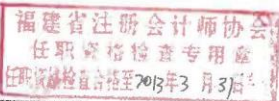 福建省注册会计师协会
任职资格检查专用章
任职资格检查合格至2013年3月31日